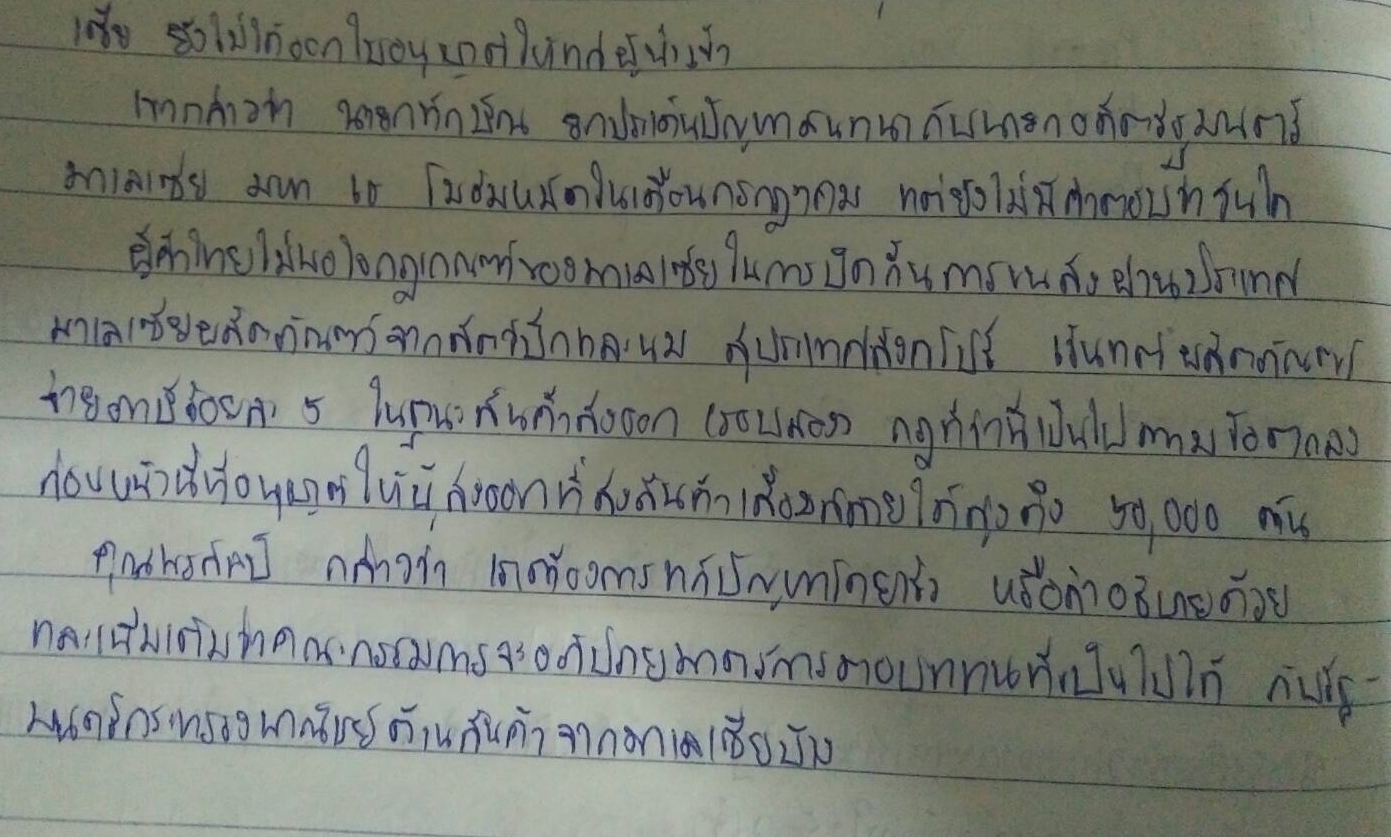 เซีย ยังไม่ได้ออกใบอนุญาตให้แก่ผู้นำเข้า
เขากล่าวว่า นายกทักษิณ ยกประเด็นปัญหาสนทนากับนายกอดีตรัฐมนตรี
มาเลเซีย มหา เธ โมฮัมหมัดในเดือนกรกฎาคม แต่ยังไม่มีคำตอบที่ทันใด
ผู้ค้าไทยไม่พอใจกฎเกณฑ์ของมาเลเซียในการปิดกั้นการขนส่งผ่านประเทศ
มาเลเซียผลิตภัณฑ์จากสัตว์ปีกและนม สู่ประเทศสิงคโปร์ เว้นแต่ผลิตภัณฑ์
จ่ายภาษีร้อยละ 5 ในฐานะสินค้าส่งออก (รอบสอง) กฎที่ว่านี้เป็นไปตามข้อตกลง
ก่อนหน้านี้ที่อนุญาตให้ผู้ส่งออกที่ส่งสินค้าเสื่อมสลายได้สูงถึง 50,000 ตัน
คุณพรศิลป์ กล่าวว่า เราต้องการแก้ปัญหาโดยเร็ว หรือคำอธิบายด้วย
และเพิ่มเติมว่าคณะกรรมการจะอภิปรายมาตรการตอบแทนที่เป็นไปได้ กับรัฐ-
มนตรีกระทรวงพาณิชย์ด้านสินค้าจากมาเลเซียบ้าง